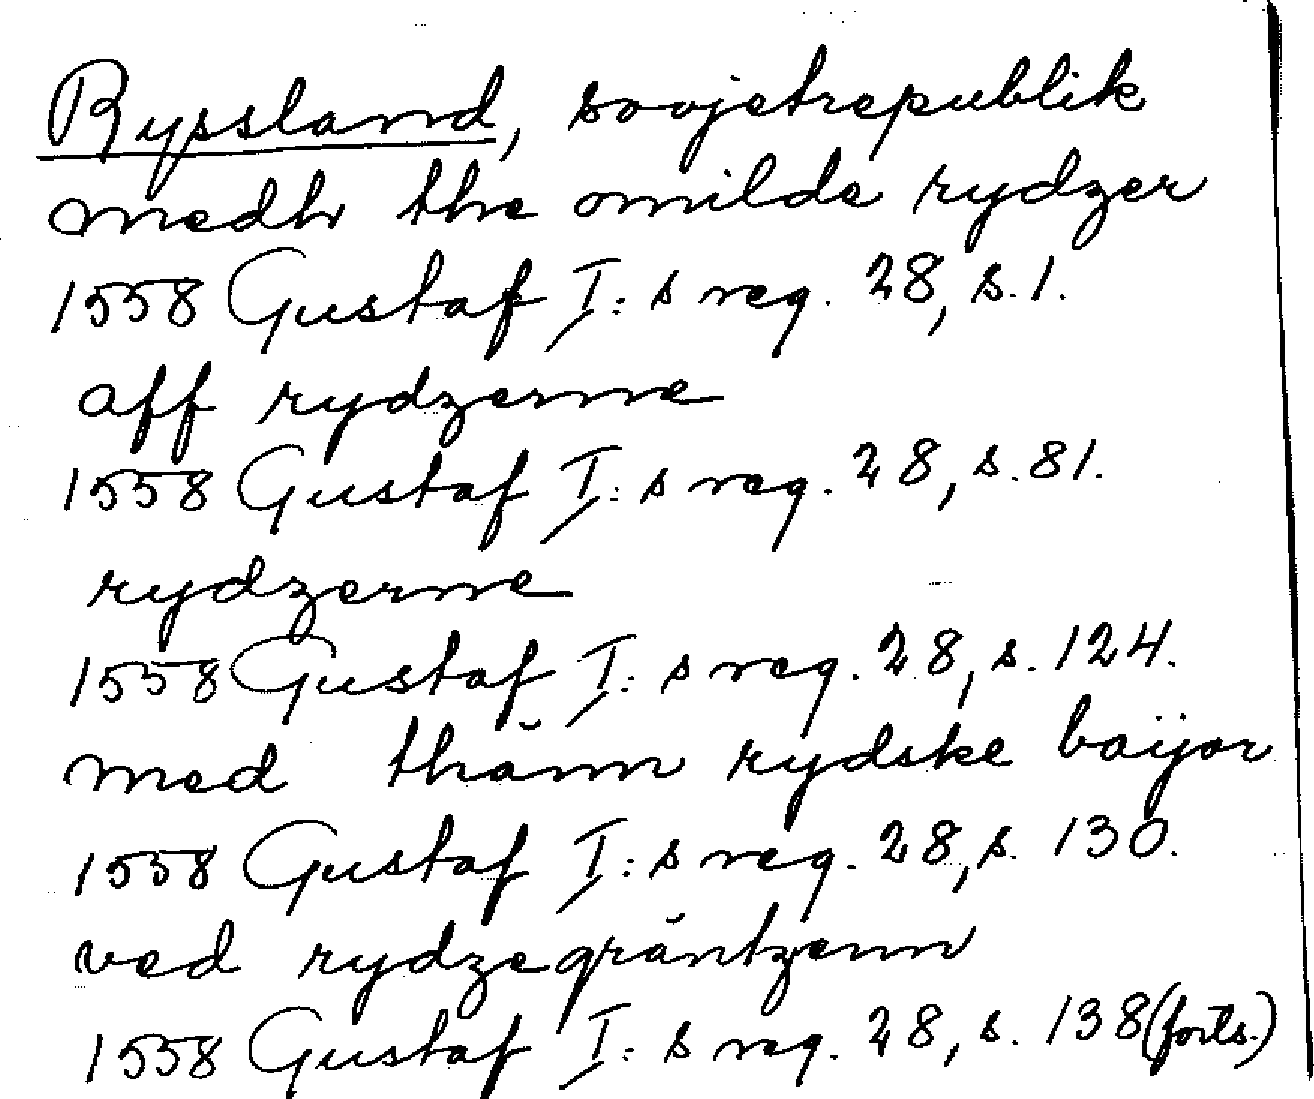 Ryssland, sovjetrepublik
medh the omilde rydzer
1558 Gustaf I:s reg. 28, s. 1.
aff rydzerne
1558 Gustaf I:s reg. 28, s. 81.
rydzerne
1558 Gustaf I:s reg. 28, s. 124.
med thănn rydske baÿor
1558 Gustaf I:s reg. 28, s. 130.
ved rydzegrăntzenn
1558 Gustaf I:s reg. 28, s. 138 (forts.)